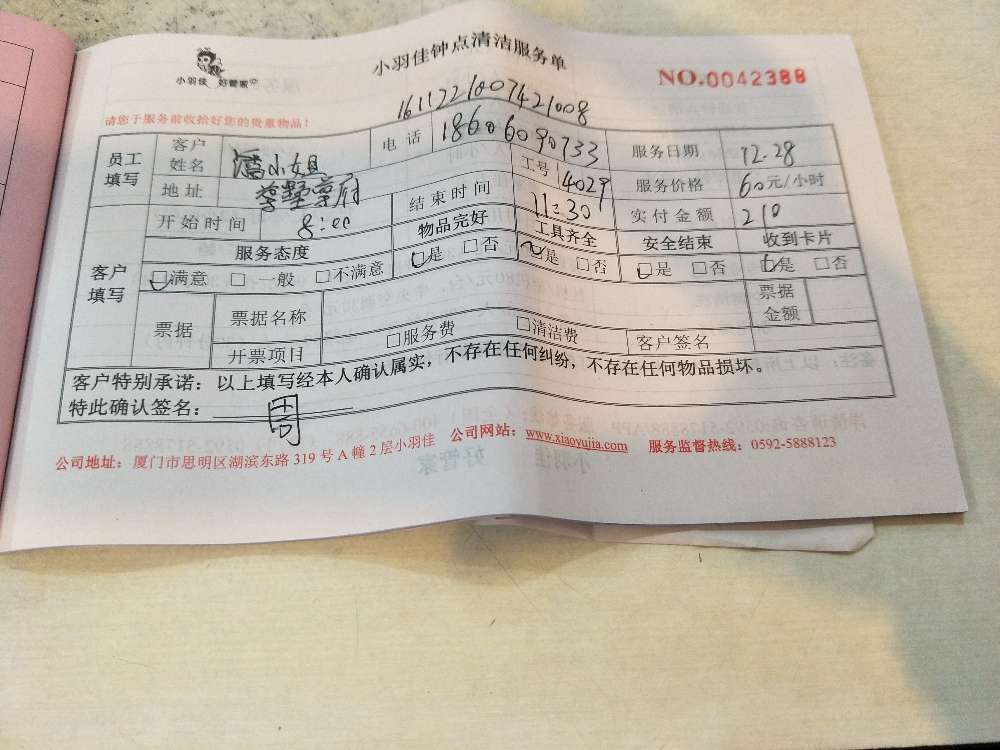 小羽佳 好管家
小羽佳钟点清洁服务单
NO.0042388
1611221007421008
请您于服务前收拾好您的贵重物品！
员工填写 客户姓名 潘小姐 电话 18606090733 服务日期 12.28
地址 工号 4029 服务价格 60元/小时
客户填写 开始时间 8:00 结束时间 11:30 实付金额 210
服务态度 物品完好 工具齐全 安全结束 收到卡片
□满意 □一般 □不满意 □是 □否 □是 □否 □是 □否 □是 □否
票据 票据名称 票据金额
开票项目 □服务费 □清洁费 客户签名
客户特别承诺：以上填写经本人确认属实，不存在任何纠纷，不存在任何物品损坏。
特此确认签名：周
公司地址：厦门市思明区湖滨东路 319 号 A 幢 2 层小羽佳 公司网站：www.xiaoyujia.com 服务监督热线：0592-5888123